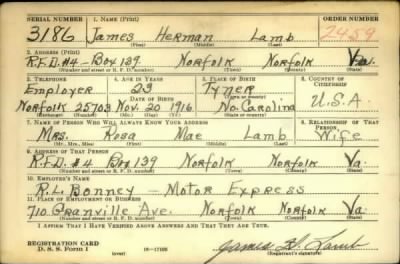 SERIAL NUMBER 1. NAME (Print) ORDER NUMBER
3186 James Herman Lamb 2459
(First) (Middle) (Last)
2. ADDRESS (Print)
R.F.D. #4 - Box 139 Norfolk Norfolk Va.
3. TELEPHONE 4. AGE IN YEARS 5. PLACE OF BIRTH 6. COUNTRY OF CITIZENSHIP
Employer 23 Tyner
DATE OF BIRTH (Town or county) U.S.A.
Norfolk 25703 Nov. 20 1916. No. Carolina
(Exchange) (Number) (Mo.) (Day) (Yr.) (State or country)
7. NAME OF PERSON WHO WILL ALWAYS KNOW YOUR ADDRESS 8. RELATIONSHIP OF THAT PERSON
Mrs. Rosa Mae Lamb Wife
(Mr., Mrs., Miss) (First) (Middle) (Last)
9. ADDRESS OF THAT PERSON
R.F.D. #4 Box 139 Norfolk Norfolk Va.
(Number and street or R. F. D. number) (Town) (County) (State)
10. EMPLOYER'S NAME
R.L. Bonney - Motor Express
11. PLACE OF EMPLOYMENT OR BUSINESS
710 Granville Ave. Norfolk Norfolk Va.
(Number and street or R. F. D. number) (Town) (County) (State)
I AFFIRM THAT I HAVE VERIFIED ABOVE ANSWERS AND THAT THEY ARE TRUE.
REGISTRATION CARD
D. S. S. Form 1 (over) James H. Lamb
(Registrant's signature)